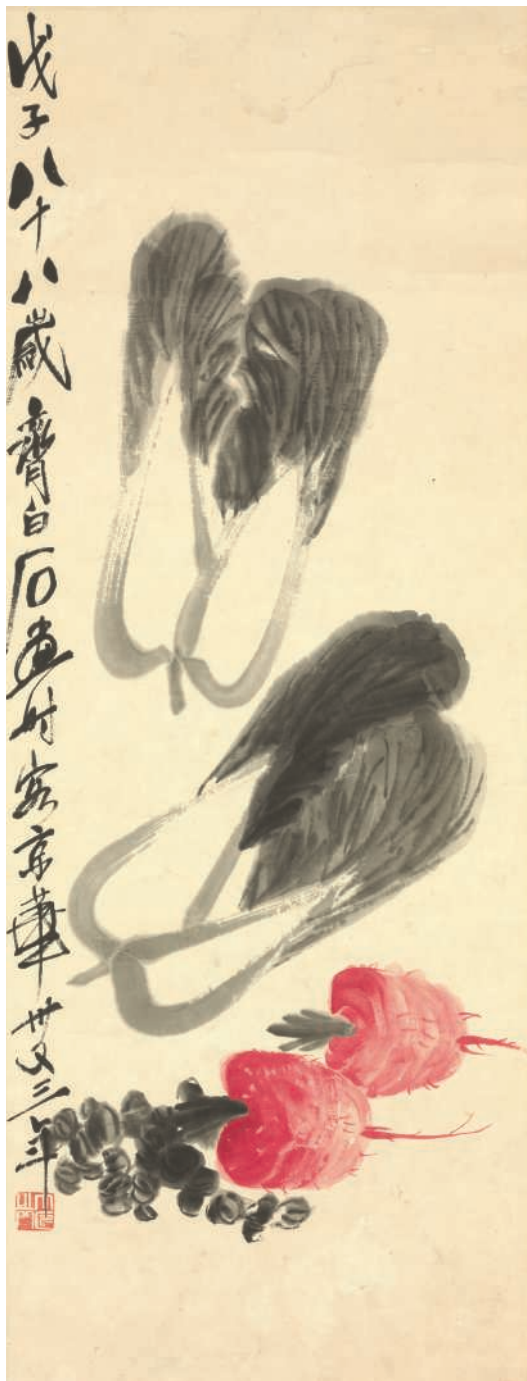 戊子八十八歲齊白石畫時客京華卅又三年